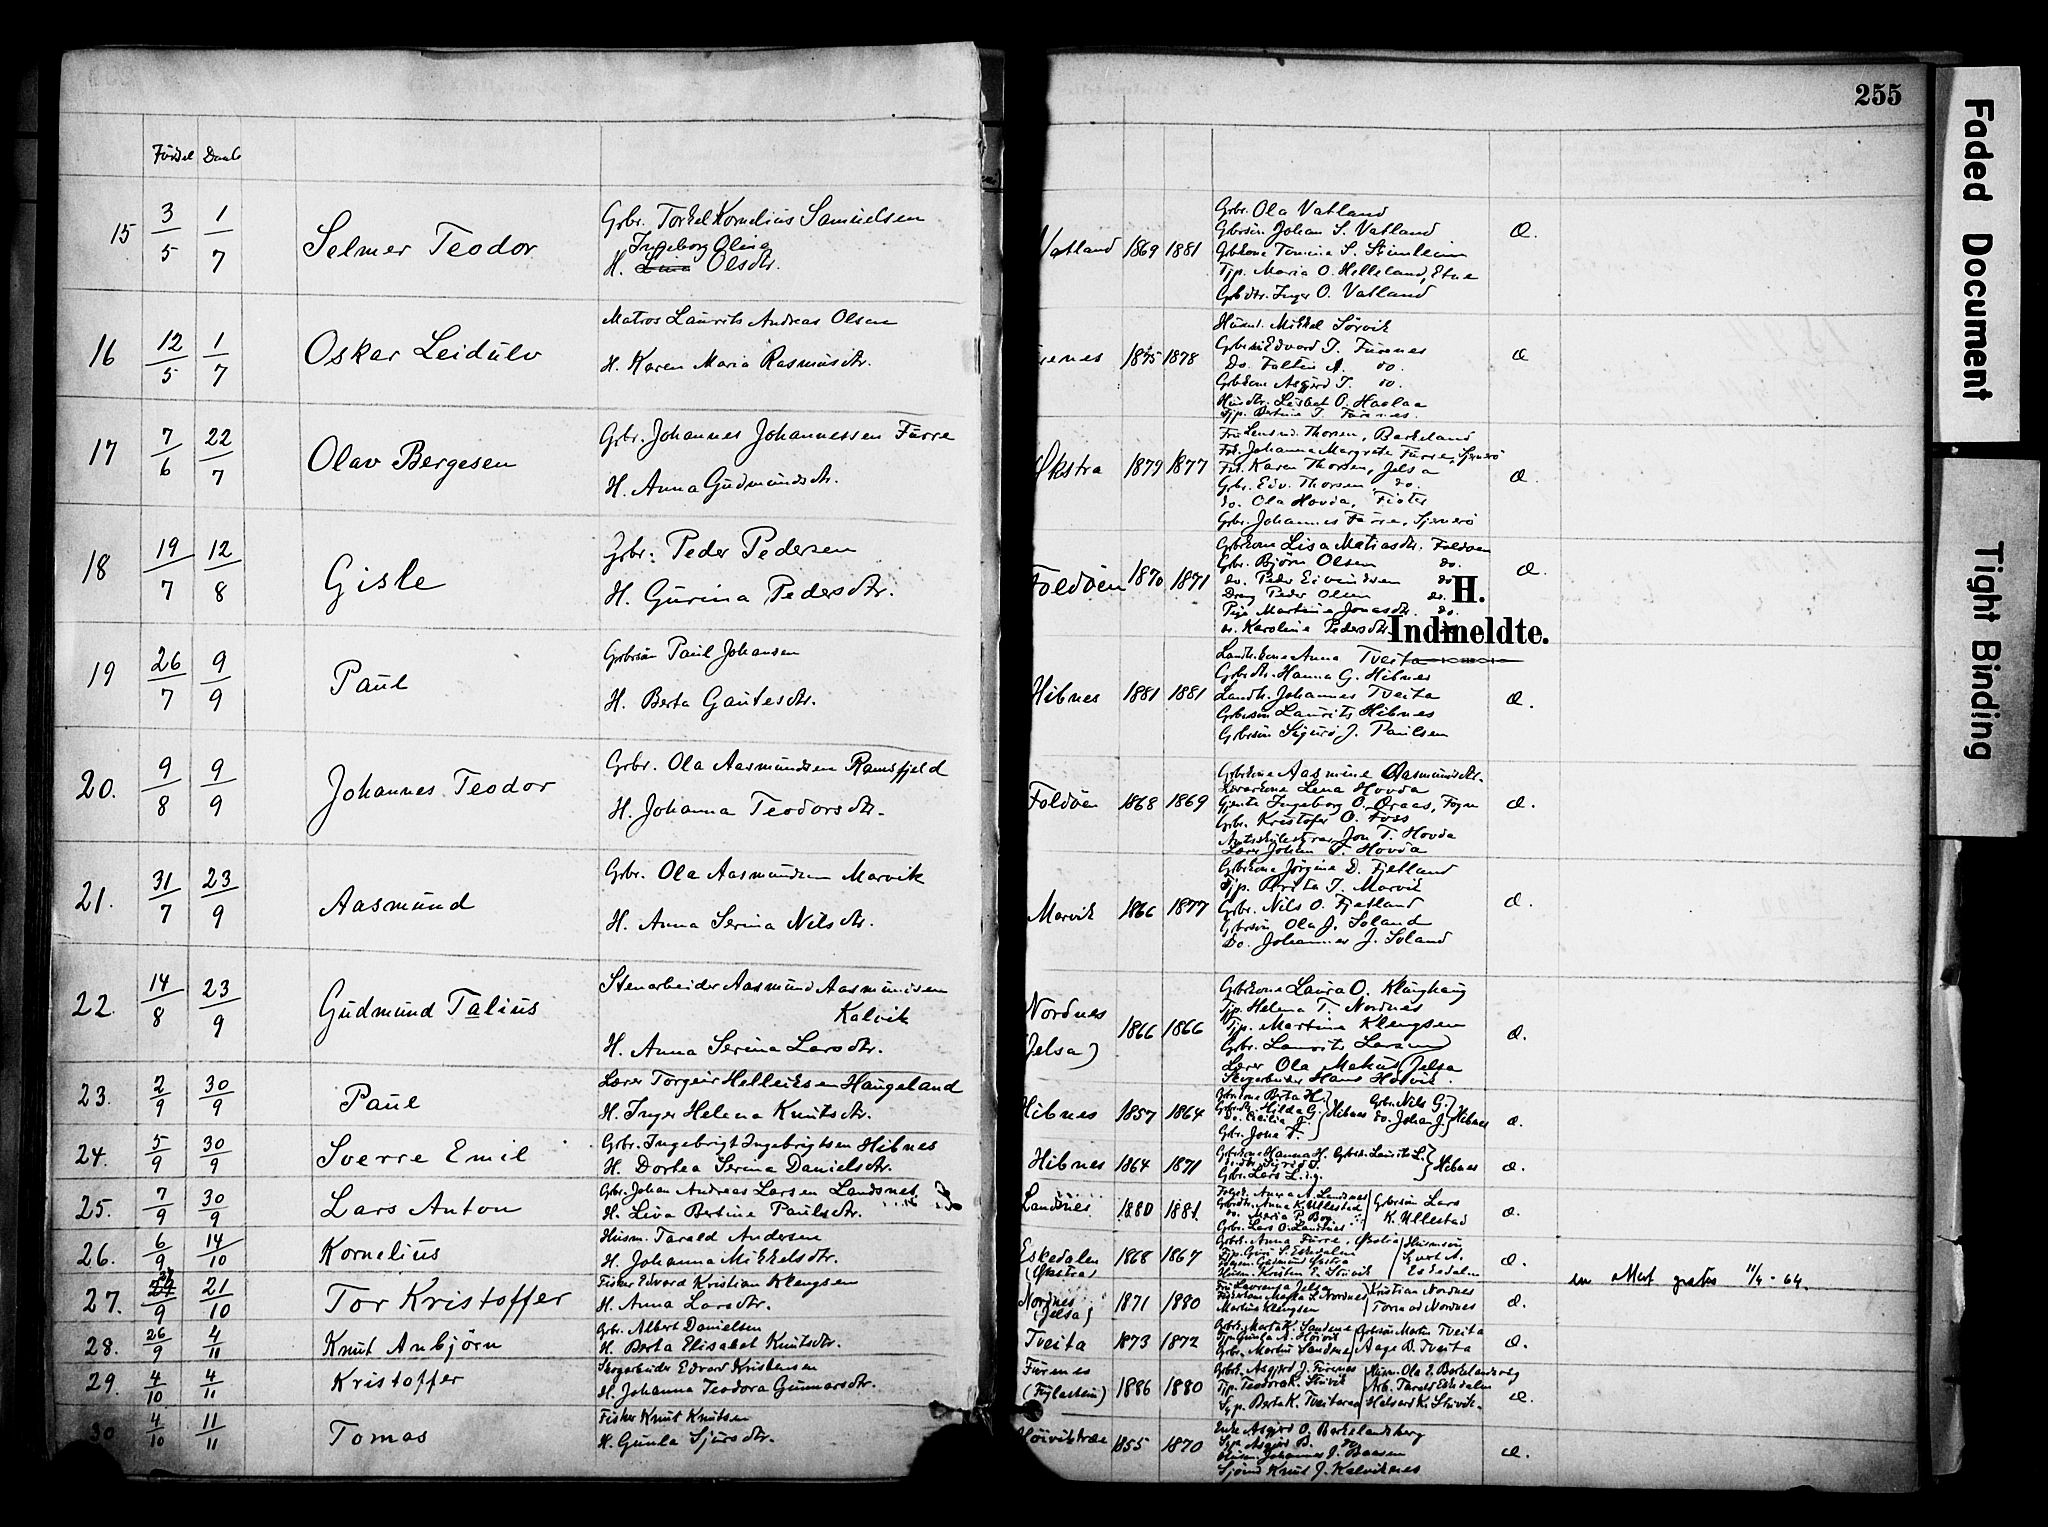 255
Faded Document
Tight Binding
Fødsel Daab
15 3/5 1/7 Selmer Teodor
Grbr. Torkel Kornelius Samuelsen
Ingeborg Olina
H. Lina Olsdtr.
Vatland 1869 1881
Grbr. Ola Vatland
Grbrsön Johan S. Vatland
Tjp. Maria O. Helleland, Etne
Grbrdtr. Inger O. Vatland
16 12/5 1/7 Oskar Leidulv
Matros Laurits Andreas Olsen
H. Karen Maria Rasmusdtr.
1875 1878
Husm. Mikkel Sørvik
Edvard T. Furenes
Do. Falten A. do.
Grbrkone Asgjerd T. do.
Tjp. Bertine T. Furenes.
17 7/6 22/7 Olav Bergesen
Grbr. Johannes Johannessen Furre
H. Anna Gudmundsdtr.
Økstra 1879 1877
Frk. Johanna Margrete Furre, Sjernerö
Frk. Karen Thorsen, Jelsa
Grbr. Edv. Thorsen do.
do. Ola Hovda, Fister
Grbr. Johannes Furre, Sjernerö
18 19/7 12/8 Gisle
Grbr. Peder Pedersen
H. Gurina Pedersdtr.
Foldöen 1870 1871
Grbrkone Lisa Matiasdtr. Foldöen
Grbr. Bjørn Olsen do.
do. Peder Eivindsen do.
Dreng Peder Olsen do.
Pige Martine Jonasdtr. do.
do. Karoline Pedersdtr.
H.
Indmeldte.
19 26/7 9/9 Paul
Grbrsön Paul Johansen
H. Berta Gautesdtr.
Hibnes 1881 1881
Landh.kone Anna Tveita
Grbrdtr. Hanna G. Hibnes
Landh. Johannes Tveita
Grbrsön Laurits Hibnes
Grbrsön Sigurd J. Paulsen
20. 9/8 9/9 Johannes Teodor
Grbr. Ola Aasmundsen Ramsfjeld
H. Johanna Teodorsdtr.
Foldöen 1868 1869
Grbrkone Aasmine Aasmundsdtr.
Lena Hovda
Gjente Ingeborg O. Fogn
Grbr. Kristofer O. Foss
Jon T. Hovda
Lærer Johan T. Hovda
21. 31/7 23/9 Aasmund
Grbr. Ola Aasmundsen Marvik
H. Anna Serina Nilsdtr.
Marvik 1866 1877
Grbrkone Jørgine D. Fjetland
Tjp. Brita T. Marvik
Grbr. Nils O. Fjetland
Grbrsön Ola J. Soland
Do. Johannes J. Soland
22. 14/8 23/9 Gudmund Talius
Stenarbeider Aasmund Aasmundsen
Kalvik
H. Anna Serina Larsdtr.
Nordnes
(Jelsa) 1866 1866
Grbrkone Laura O. Klunghaug
Tjp. Helena T. Nordnes
Tjp. Martine Klengsen
Grbr. Laurits Larsen
Lærer Ola Jelsa
Skogarbeider Hans
23. 2/9 30/9 Paul
Lærer Torgeir Helleiksen Haugeland
H. Inger Helena Knutsdtr.
Hibnes 1857 1864
Grbrkone Berta H.
Grbrdtr. Hilda G.
do. Cecilia J.
Grbr. Jone T. Hibnes
Grbr. Nils G.
do. Johan J. Hibnes
24. 5/9 30/9 Sverre Emil
Grbr. Ingebrigt Ingebrigtsen Hibnes
H. Dortea Serina Danielsdtr.
Hibnes 1864 1871
Grbrkone Hanna H. Grbrsön Laurits L.
Grbr. Lars L. Hibnes
25. 7/9 30/9 Lars Anton
Grbr. Johan Andreas Larsen Landsnes
H. Liva Bertine Paulsdtr.
Landsnes 1880 1881
Anna A. Landsnes
Grbrdtr. Anna K. Ullestad
do. Maria P. Bog
Grbr. Lars O. Landsnes
Grbrsön Lars
K. Ullestad
26. 6/9 14/10 Kornelius
Husm. Tarald Andersen
H. Johanna Mikkelsdtr.
Eskedalen
(Økstra) 1868 1867
Grbrk. Anna Furre, Økstra
Tjp. Guri S. Eskedalen
Gudmund Økstra
Husm. Kristen E. Stuvik
Husmsön
Sjvert A.
Eskedalen
27. 9 21/10 Tor Kristoffer
Fisker Edvard Kristian Klengsen
H. Anna Larsdtr.
Nordnes
(Jelsa) 1871 1880
Marta S. Nordnes
Martin Klengsen
Kristian Nordnes
Tormod Nordnes
en Attest gratis 11/4 - 64.
28. 26/9 4/11 Knut Anbjörn
Grbr. Albert Danielsen
H. Berta Elisabet Knutsdtr.
Tveita 1873 1872
Grbrk. Marta K. Sandene
Grbr. Martin Sandene
Grbrsön Martin Tveita
Aage B. Tveita
29. 4/10 4/11 Kristoffer
Skogarbeider Edvard Kristensen
H. Johanna Teodora Gunnarsdtr.
Furenes
1886 1880
Grbrk. Asgjerd J. Furenes
Tjp. Teodora K. Stuvik
Syp. Berta K. Tveiteraa
Husm. Ola E. Berkelandsberg
Arb. Tarald Eskedalen
Halvard K. Stuvik
30 4/10 11/11 Tomas
Fisker Knut Knutsen
H. Gunla Sjursdtr.
1855 1870
Enke Asgjerd O. Berkelandsberg
Syp. Asgjerd B. do.
Husm. Johannes J. Baasen
Sjömd. Knut J. Kalviknes